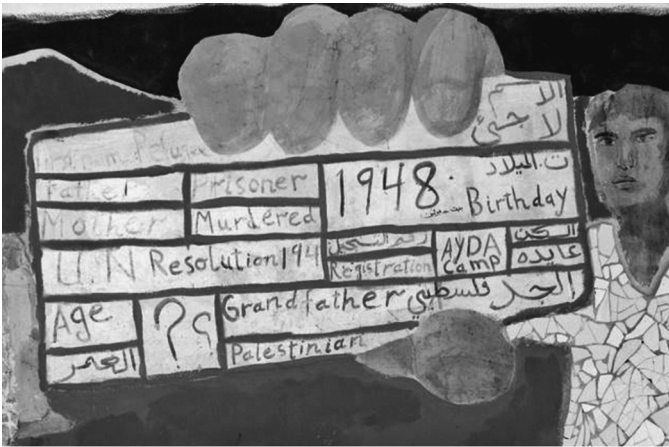 الاسم
لاجئ
First name Refugee
Father Prisoner
Mother Murdered
1948 ت. الميلاد
Birthday
U.N Resolution 194
رقم التسجيل
Registration
AYDA
Camp
السكن
عايده
Age
العمر
? ؟
Grandfather الجد فلسطيني
Palestinian